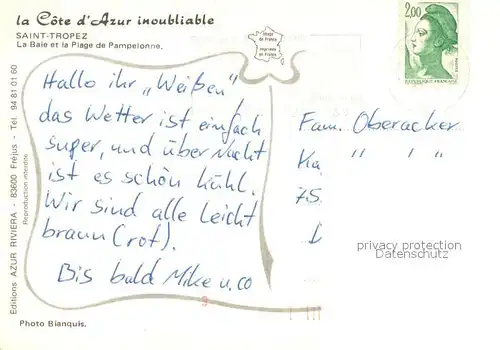 la Côte d'Azur inoubliable
SAINT-TROPEZ
La Baie et la Plage de Pampelonne.
image
de France
imprimée
en France
2,00
Hallo ihr „Weißen"
das Wetter ist einfach
super, und über Nacht
ist es schön kühl.
Wir sind alle leicht
braun (rot).
Bis bald Mike u. co
Fam. Oberacker
Ka " " "
75
privacy protection
Datenschutz
Editions AZUR RIVIERA - 83600 Fréjus - Tél. 94 81 01 60
Reproduction interdite
Photo Bianquis.